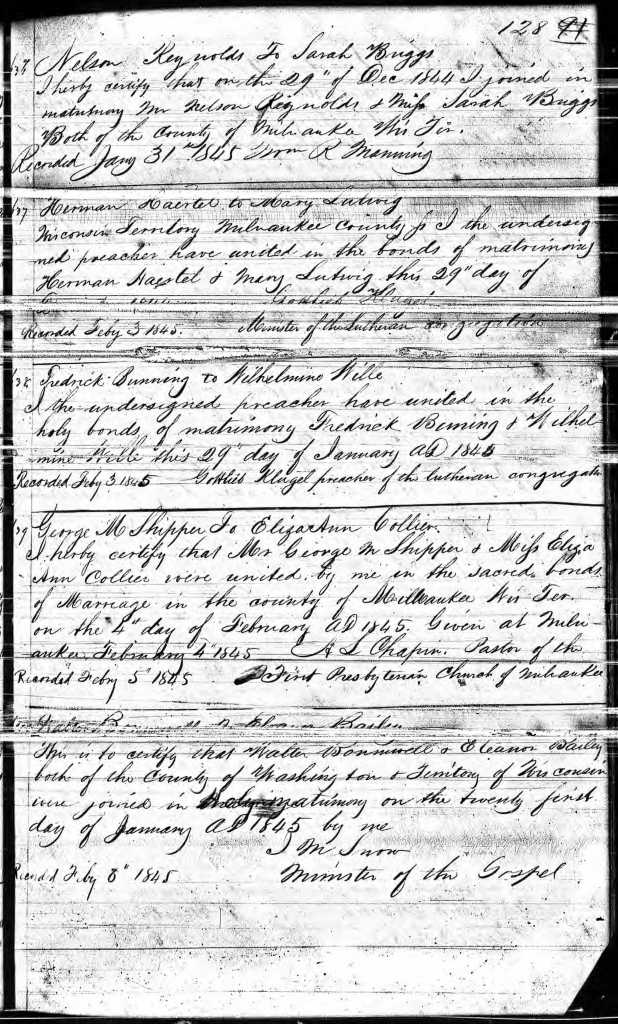 128 91
136 Nelson Reynolds To Sarah Briggs
I herby certify that on the 29" of Dec 1844 I joined in
matrimony Mr Nelson Reynolds & Miss Sarah Briggs
Both of the County of Milwaukee Wis Ter.
Recorded Jany 31" 1845 Wm R Manning
137 Herman Haertel to Mary Lutwig
Wisconsin Territory Milwaukee County ss I the undersig
ned preacher have united in the bonds of matrimony
Herman Haestel & Mary Lutwig this 29" day of
Gottlieb Klugel
Recorded Feby 3 1845. Minister of the Lutheran congregation
138 Fredrick Bunning to Wilhelmine Wille
I the undersigned preacher have united in the
holy bonds of matrimony Fredrick Benning & Wilhel
mine Wille this 29" day of January AD 1845
Recorded Feby 3 1845 Gottlieb Klugel preacher of the lutheran congregatn
139 George M Shipper To Eliza Ann Collier.
I herby certify that Mr George M Shipper & Miss Eliza
Ann Collier were united by me in the sacred bonds
of Marriage in the county of Milwaukee Wis Ter.
on the 4" day of February AD 1845. Given at Milw
aukee, February 4" 1845 A L Chapin. Pastor of the
Recorded Febry 5" 1845 First Presbyterian Church of Milwaukee
Eleanor Bailey
This is to certify that Walter Bonniwell & Eleanor Bailey
both of the County of Washington & Territory of Wisconsin
were joined in matrimony on the twenty first
day of January AD 1845 by me
I M Snow
Recorded Feby 8" 1845 Minister of the Gospel